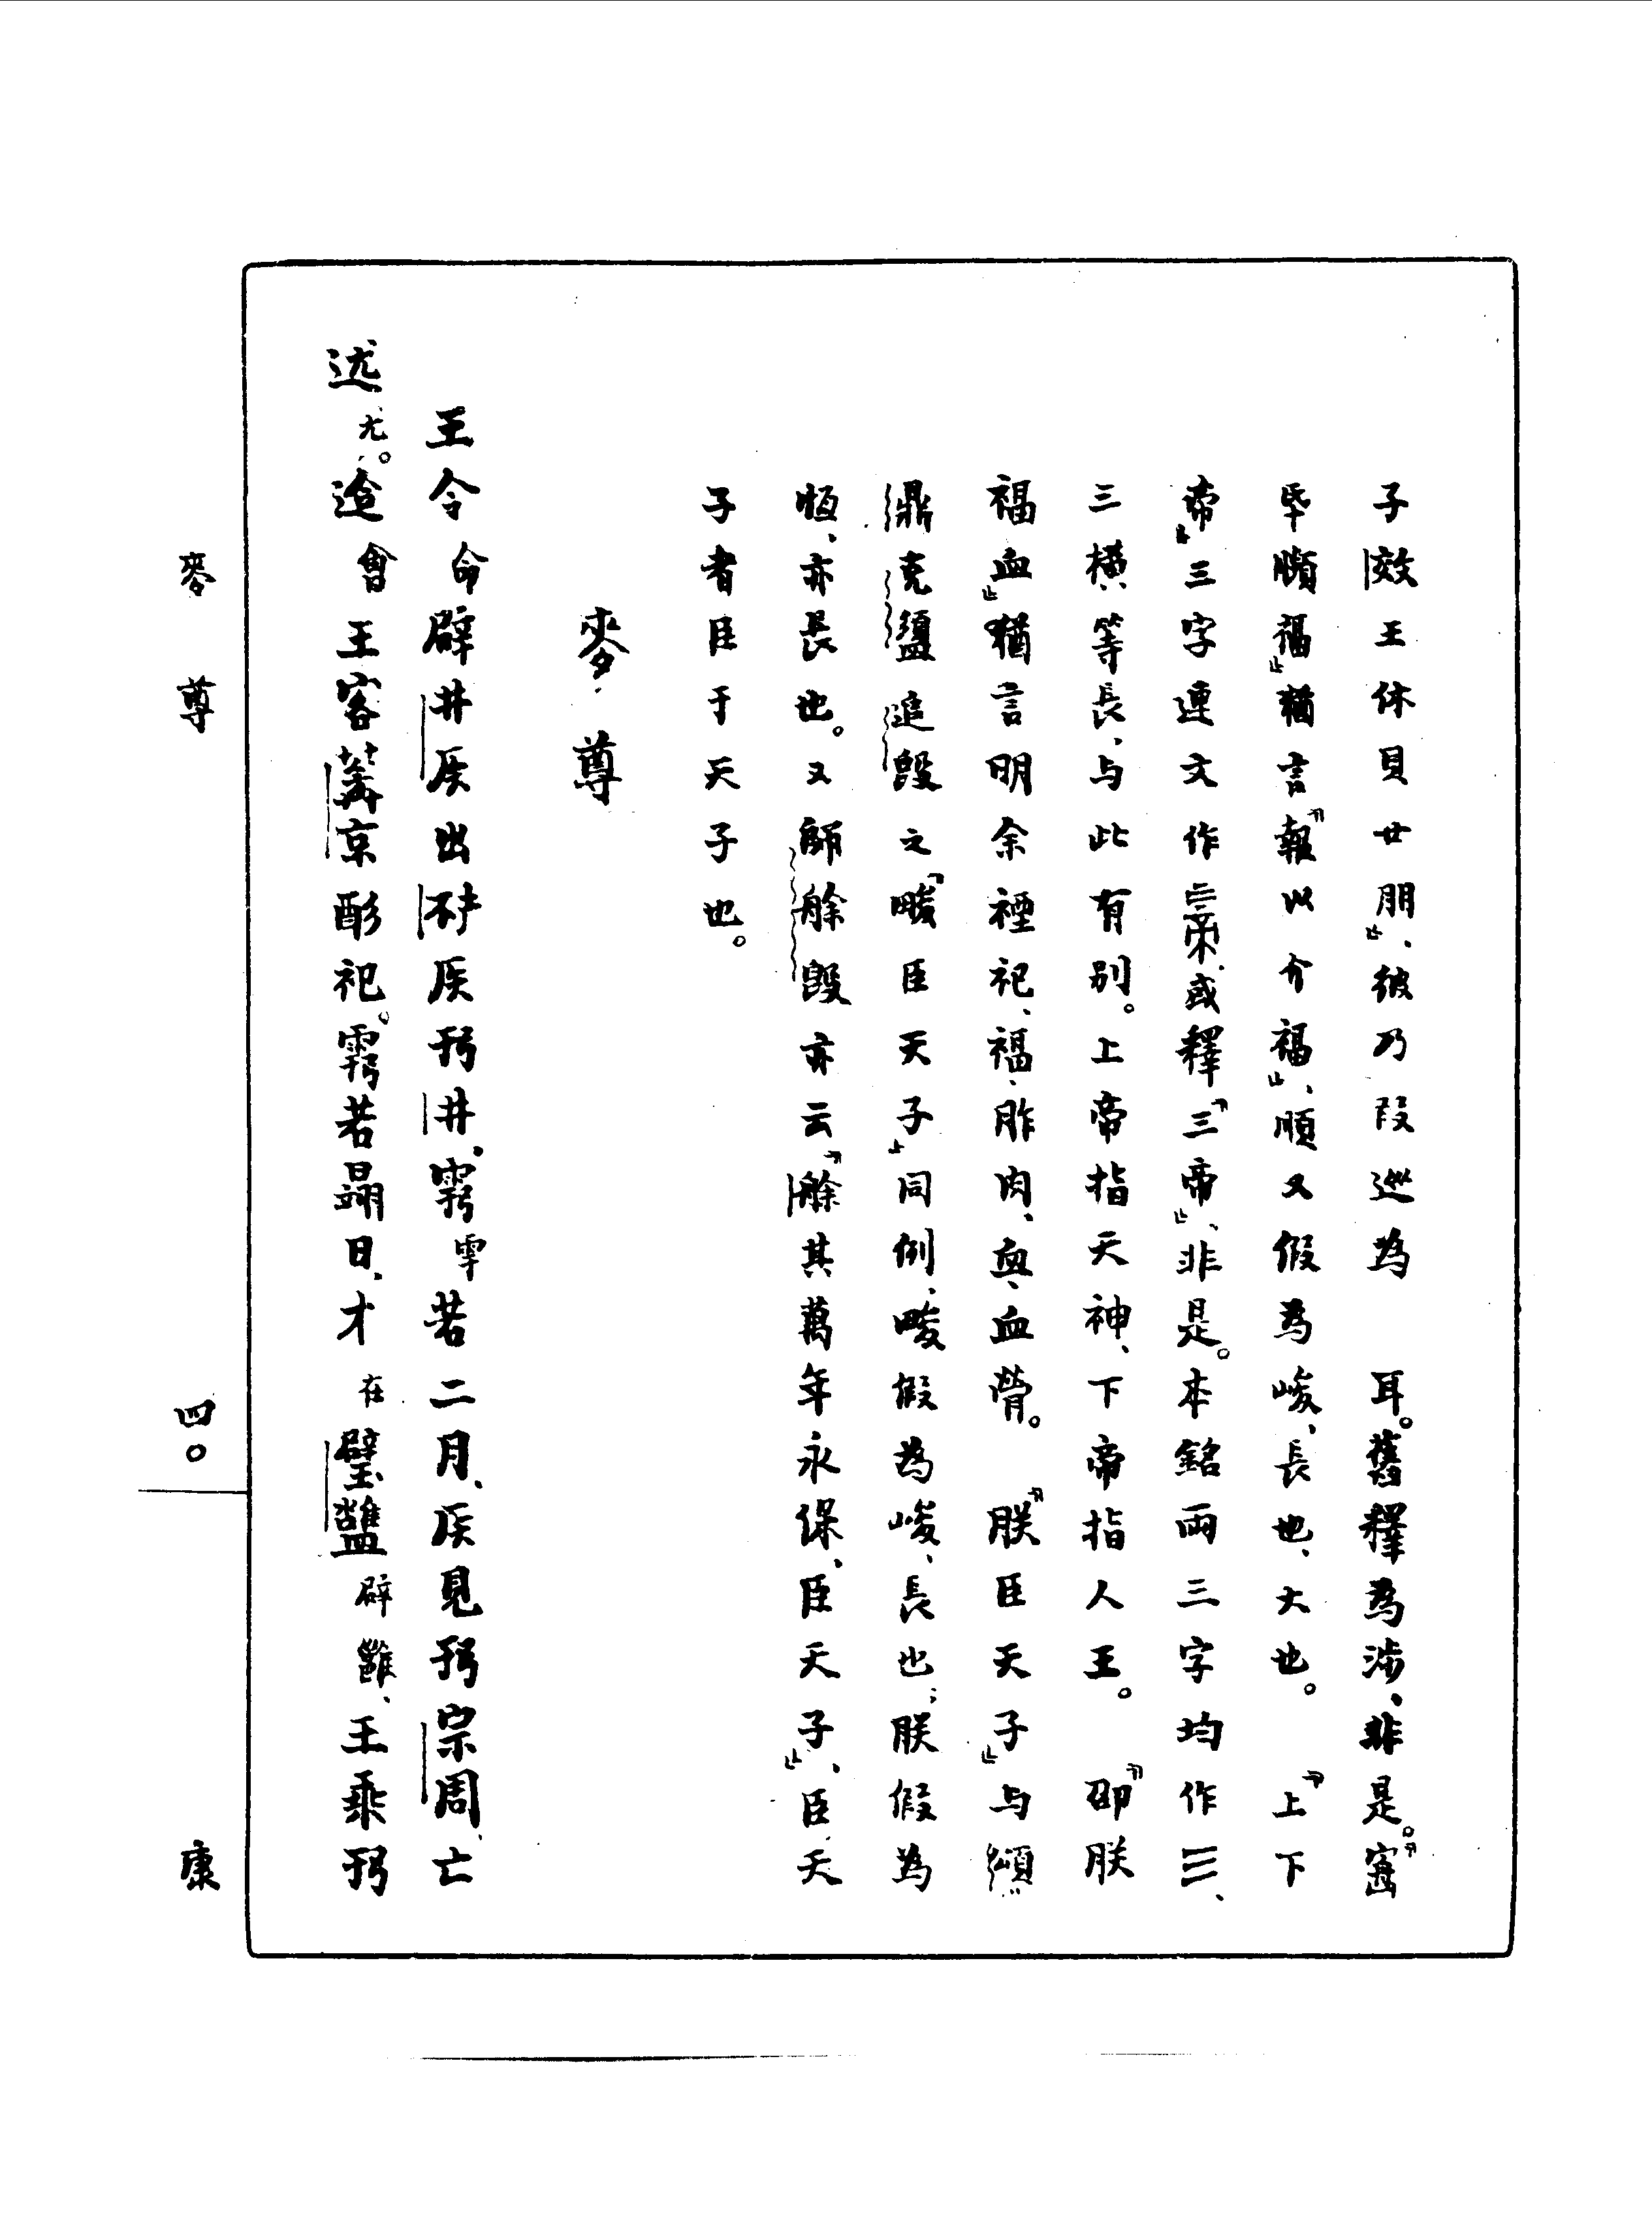 子效王休貝廿朋』、彼乃叚巡為 耳。舊釋為涉、非是。『𡪹
㞢順福』猶言『報以介福』、順又假為峻、長也、大也。『上下
帝』三字連文作𠄞帝、或釋『三帝』、非是。本銘兩三字均作三、
三橫等長、与此有別。上帝指天神、下帝指人王。『卲朕
福血』猶言明余禋祀、福、胙肉、血、血膋。『朕臣天子』与頌
鼎克盨追𣪘之『畯臣天子』同例、畯假為峻、長也；朕假為
恆、亦長也。又師艅𣪘亦云『艅其萬年永保、臣天子』、臣天
子者臣于天子也。
麥尊
王令命辟井侯出㘸侯𢓊井、𩁹雩若二月、侯見𢓊宗周、亡
𨒪尤。迨會王客𦯔京耏祀。𩁹若翌日、才在璧𨿳辟雝、王乘𢓊
麥尊 四〇 康